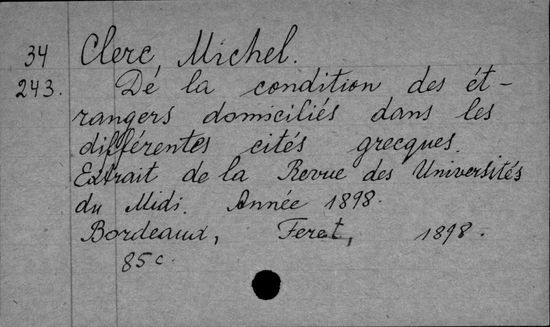 34 Clerc, Michel.
243. Dé la condition des ét-
rangers domiciliés dans les
différentes cités grecques.
Extrait de la Revue des Universités
du Midi. Année 1898.
Bordeaux, Feret, 1898.
85 c.